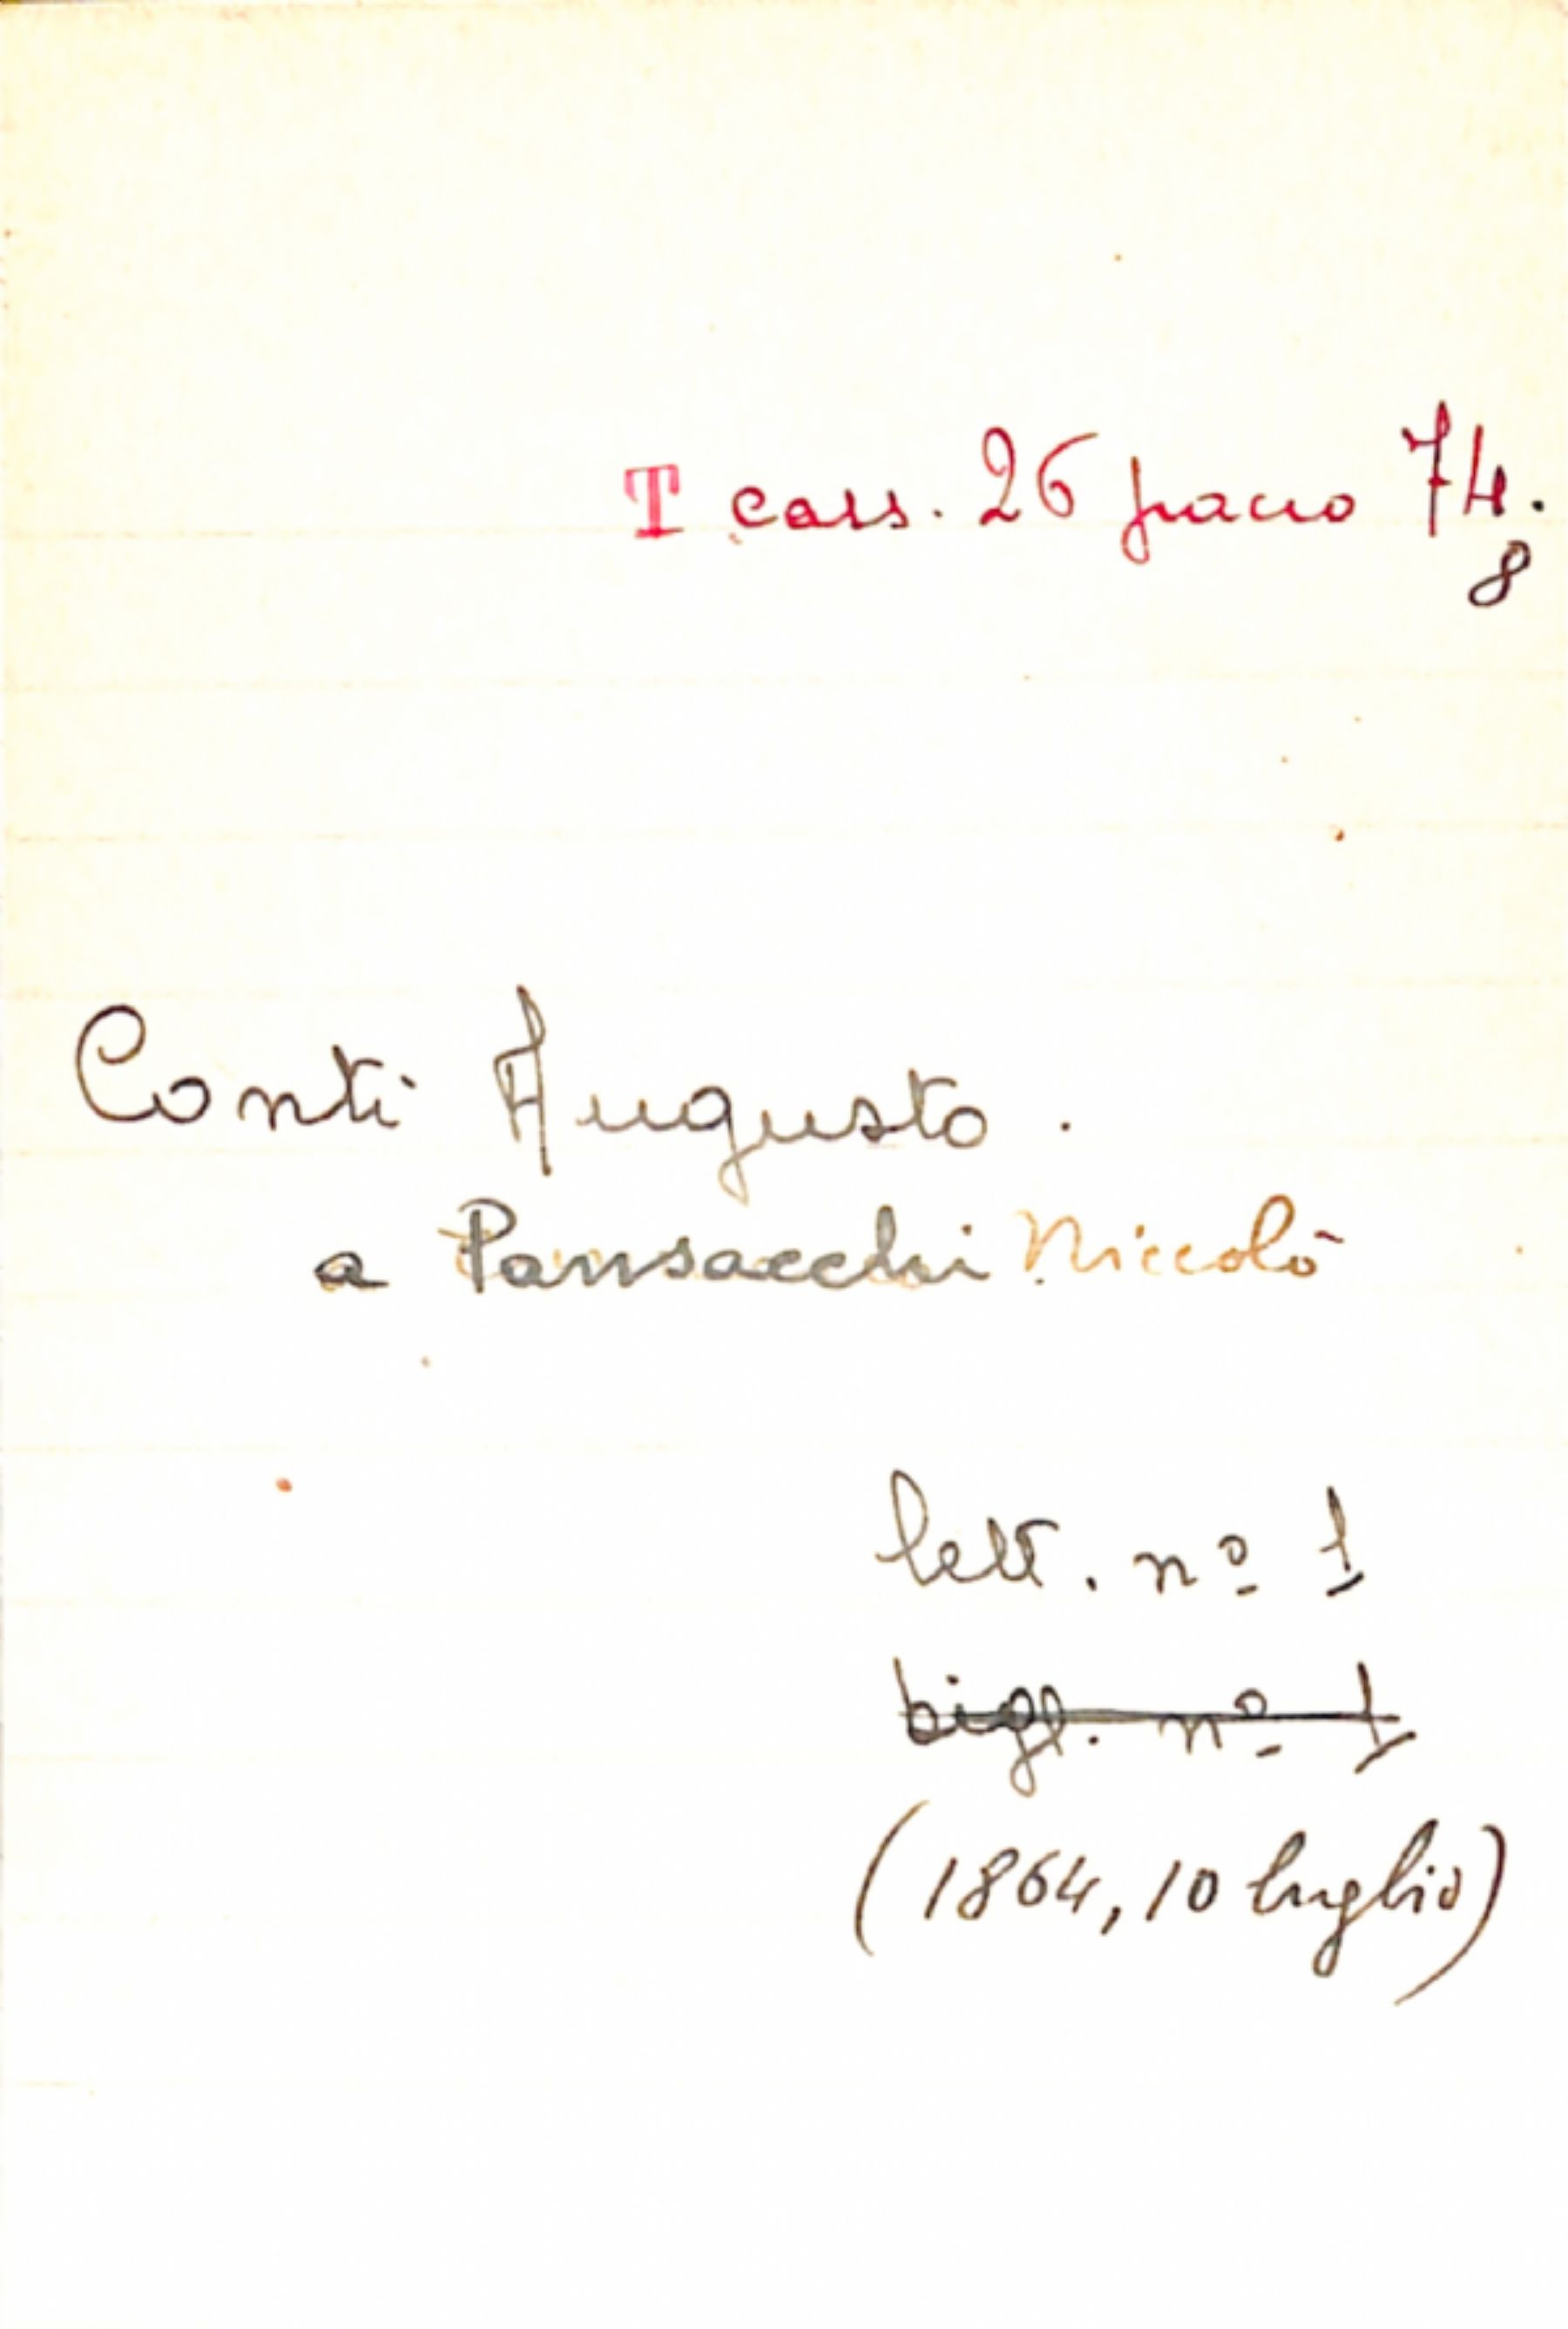 T cass. 26 pacco 74.
8
Conti Augusto.
a Pansacchi Niccolò
lett. nº 1
bigl. nº 1
(1864, 10 luglio)